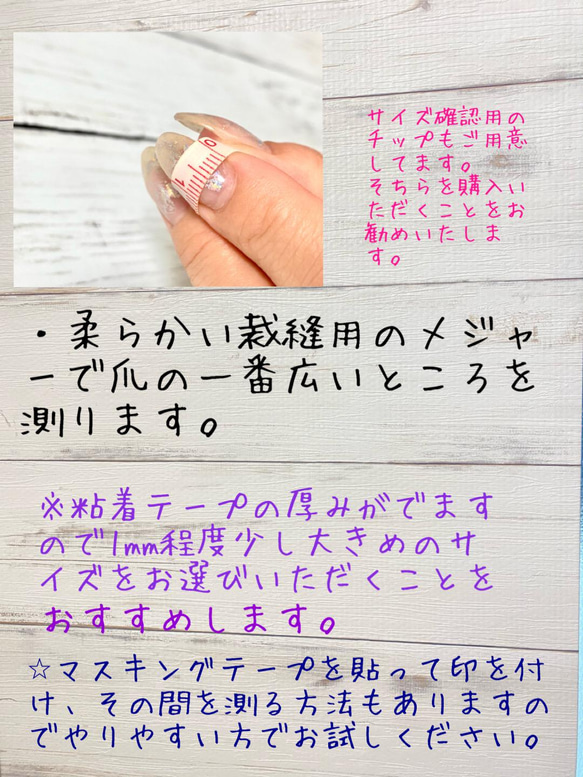 サイズ確認用の
チップもご用意
してます。
そちらを購入い
ただくことをお
勧めいたしま
す。
・柔らかい裁縫用のメジャ
ーで爪の一番広いところを
測ります。
※粘着テープの厚みがでます
ので1mm程度少し大きめのサ
イズをお選びいただくことを
おすすめします。
☆マスキングテープを貼って印を付
け、その間を測る方法もありますの
でやりやすい方でお試しください。